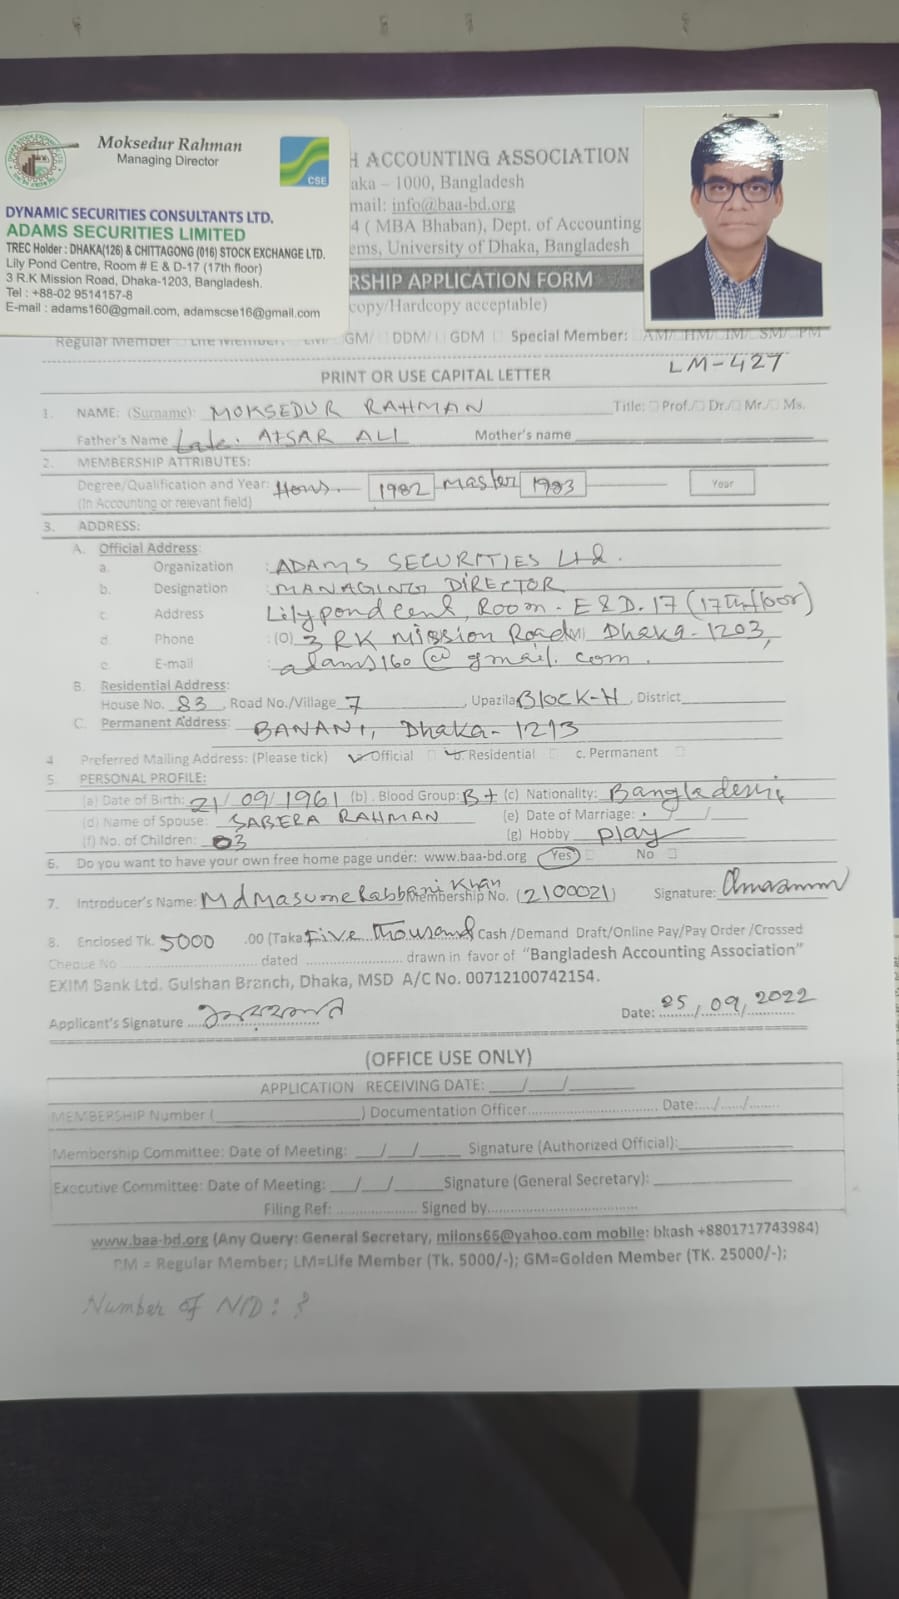 Moksedur Rahman
Managing Director
CSE
DYNAMIC SECURITIES CONSULTANTS LTD.
ADAMS SECURITIES LIMITED
TREC Holder : DHAKA(126) & CHITTAGONG (016) STOCK EXCHANGE LTD.
Lily Pond Centre, Room # E & D-17 (17th floor)
3 R.K Mission Road, Dhaka-1203, Bangladesh.
Tel : +88-02 9514157-8
E-mail : adams160@gmail.com, adamscse16@gmail.com
H ACCOUNTING ASSOCIATION
aka – 1000, Bangladesh
mail: info@baa-bd.org
4 ( MBA Bhaban), Dept. of Accounting
ems, University of Dhaka, Bangladesh
RSHIP APPLICATION FORM
copy/Hardcopy acceptable)
Regular Member Life Member: LM/ GM/ DDM/ GDM Special Member: AM/ HM/ IM/ SM/ PM
LM-427
PRINT OR USE CAPITAL LETTER
1. NAME: (Surname): MOKSEDUR RAHMAN Title: Prof./ Dr./ Mr./ Ms.
Father's Name Late. AFSAR ALI Mother's name
2. MEMBERSHIP ATTRIBUTES:
Degree/Qualification and Year: Hons. 1982 Master 1983 Year
(In Accounting or relevant field)
3. ADDRESS:
A. Official Address:
a. Organization : ADAMS SECURITIES Ltd.
b. Designation : MANAGING DIRECTOR
c. Address Lily pond cent, Room- E & D. 17 (17th floor)
d. Phone : (O) 3 RK Mission Road Dhaka-1203,
e. E-mail : adams160@gmail.com.
B. Residential Address:
House No. 83, Road No./Village 7, Upazila Block-H, District
C. Permanent Address: BANANI, Dhaka-1213
4 Preferred Mailing Address: (Please tick) a. Official b. Residential c. Permanent
5. PERSONAL PROFILE:
(a) Date of Birth: 21/09/1961 (b). Blood Group: B+ (c) Nationality: Bangladeshi
(d) Name of Spouse: SABERA RAHMAN (e) Date of Marriage: / /
(f) No. of Children: 03 (g) Hobby play
6. Do you want to have your own free home page under: www.baa-bd.org Yes No
7. Introducer's Name: Md Masume Rabbani Khan Membership No. (2100021) Signature:
8. Enclosed Tk. 5000 .00 (Taka Five Thousand Cash /Demand Draft/Online Pay/Pay Order /Crossed
Cheque No ........ dated ........ drawn in favor of "Bangladesh Accounting Association"
EXIM Bank Ltd. Gulshan Branch, Dhaka, MSD A/C No. 00712100742154.
Applicant's Signature ..... Date: 25/09/2022
(OFFICE USE ONLY)
APPLICATION RECEIVING DATE: ___/___/______
MEMBERSHIP Number (______________) Documentation Officer................ Date:..../...../........
Membership Committee: Date of Meeting: ___/___/____ Signature (Authorized Official):__________
Executive Committee: Date of Meeting: ___/___/_____ Signature (General Secretary): __________
Filing Ref: .................... Signed by....................
www.baa-bd.org (Any Query: General Secretary, milons66@yahoo.com mobile: bkash +8801717743984)
RM = Regular Member; LM=Life Member (Tk. 5000/-); GM=Golden Member (TK. 25000/-);
Number of NID: ?